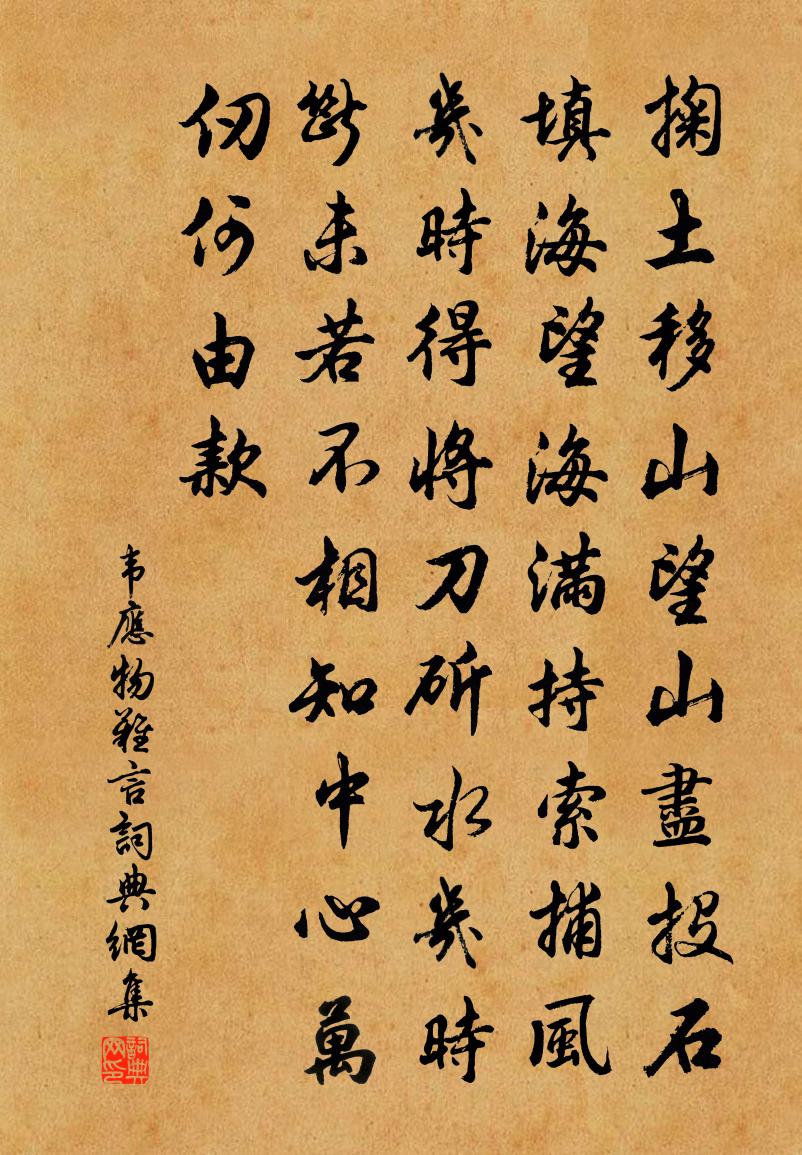 掬土移山望山盡投石
填海望海滿持索捕風
幾時得將刀斫水幾時
斷未若不相知中心萬
仞何由款
韦應物難言詞典網集
詞典網印